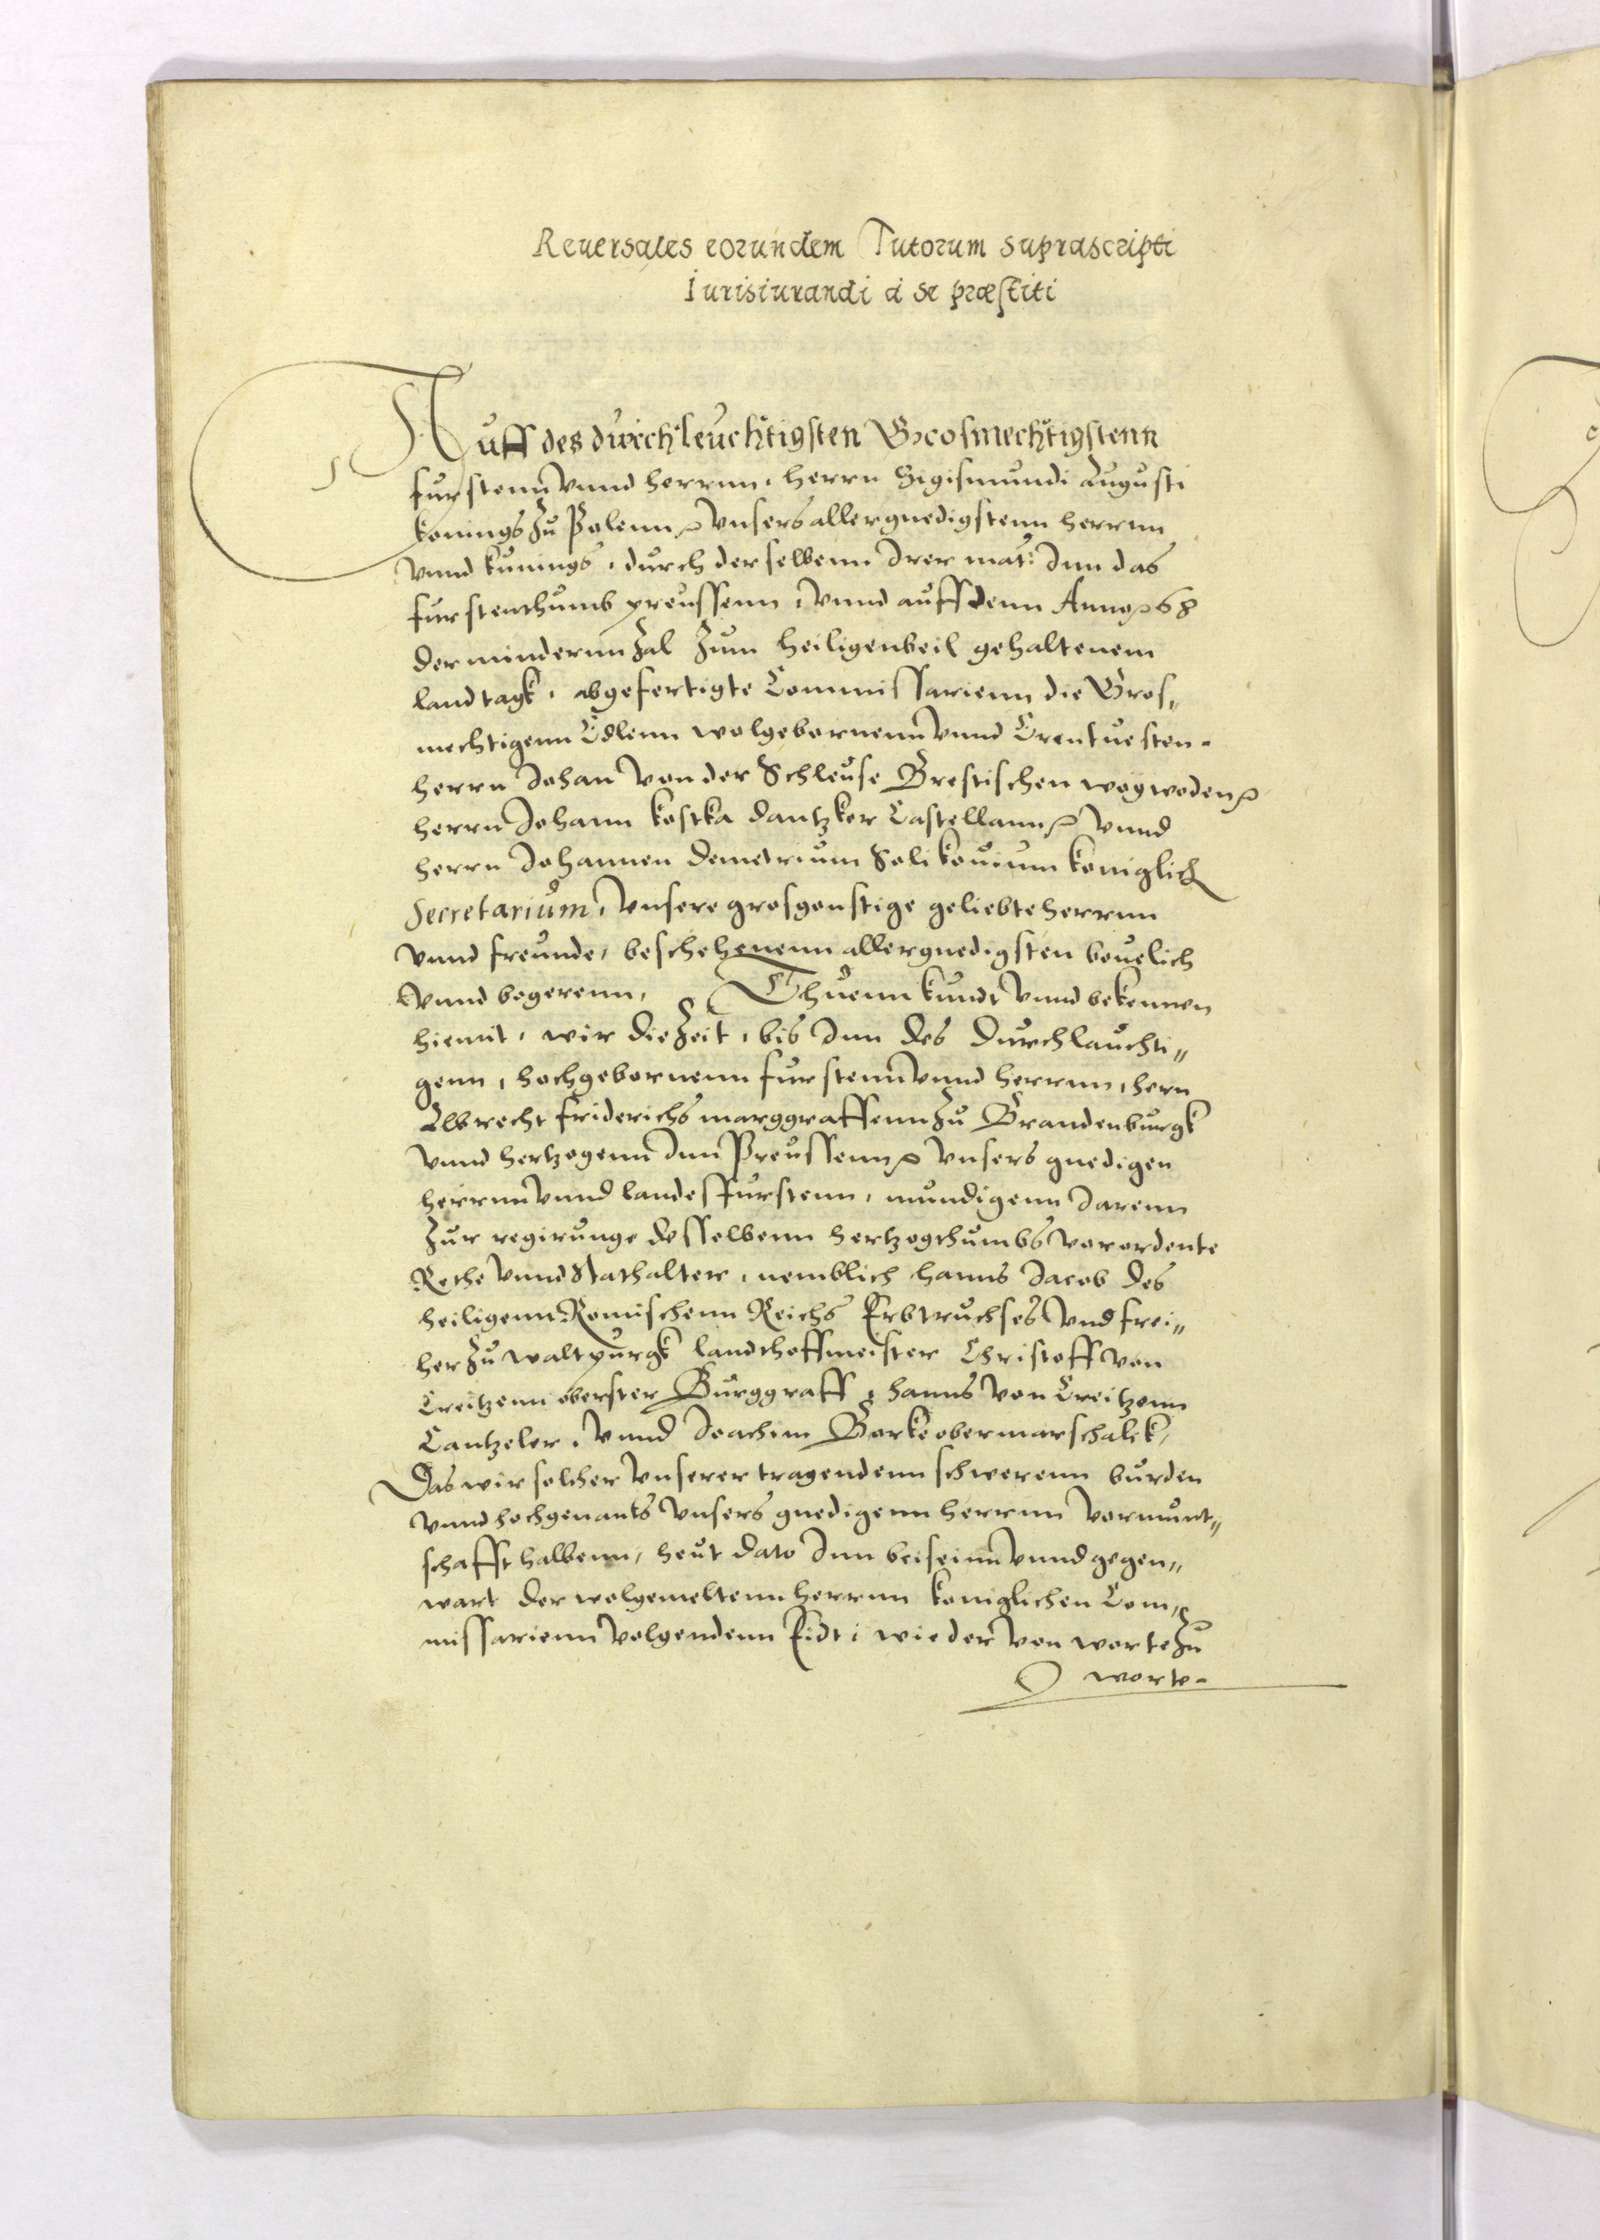 Reuersales eorundem Tutorum suprascripti
Iurisiurandi a se præstiti
Auff des durchleuchtigsten Grosmechtigstenn
furstenn vnnd herrnn, herrn Sigismundi Augusti
konings zu Polenn ꝛc vnsers allergnedigstenn herrnn
vnnd kunings, durch derselbenn Irer mat: Inn das
furstenthumb preussenn, vnnd auff denn Anno ꝛc 68
der mindernn zal zum heiligenbeil gehaltenem
landtagk, abgefertigte Commissarienn die Gros„
mechtigenn Edlenn wolgebornenn vnnd Erentuesten
herrn Johan von der Schleuse Brestischen woywoden ꝛc
herrn Johann kostka dantzker Castellann ꝛc vnnd
herrn Johannen demetrium Solikouium koniglich
Secretarium, vnsere grosgonstige geliebte herrnn
vnnd freunde, beschehenenn allergnedigsten beuelich
vnnd begerenn, Thuenn kundt vnnd bekennen
hiemit, wir die zeit, bis Inn des durchlauchti„
genn, hochgebornenn furstenn vnnd herrnn, hern
Albrecht friderichs marggraffenn zu Brandenburgk
vnnd hertzogenn Inn Preussenn ꝛc vnsers gnedigen
herrnn vnnd landesfurstenn, mundigenn Jarenn
zur regirunge desselbenn hertzogthumbs verordente
Rethe vnnd Stathalter, nemblich hanns Jacob des
heiligenn Romischenn Reichs Erbtruchses vnd frei„
her zu waltpurgk landthoffmeister Christoff von
Creitzenn oberster Burggraff, hanns von Creitzenn
Cantzeler, vnnd Joachim Borke obermarschalck,
Das wir solcher vnserer tragendenn schwerenn burden
vnnd hochgenants vnsers gnedigenn herrnn vormunt„
schafft halbenn, heut dato Inn beiseinn vnnd gegen„
wart der wolgemeltenn herrnn koniglichen Com„
missarienn volgendenn Eidt, wie der von worte zu
worte